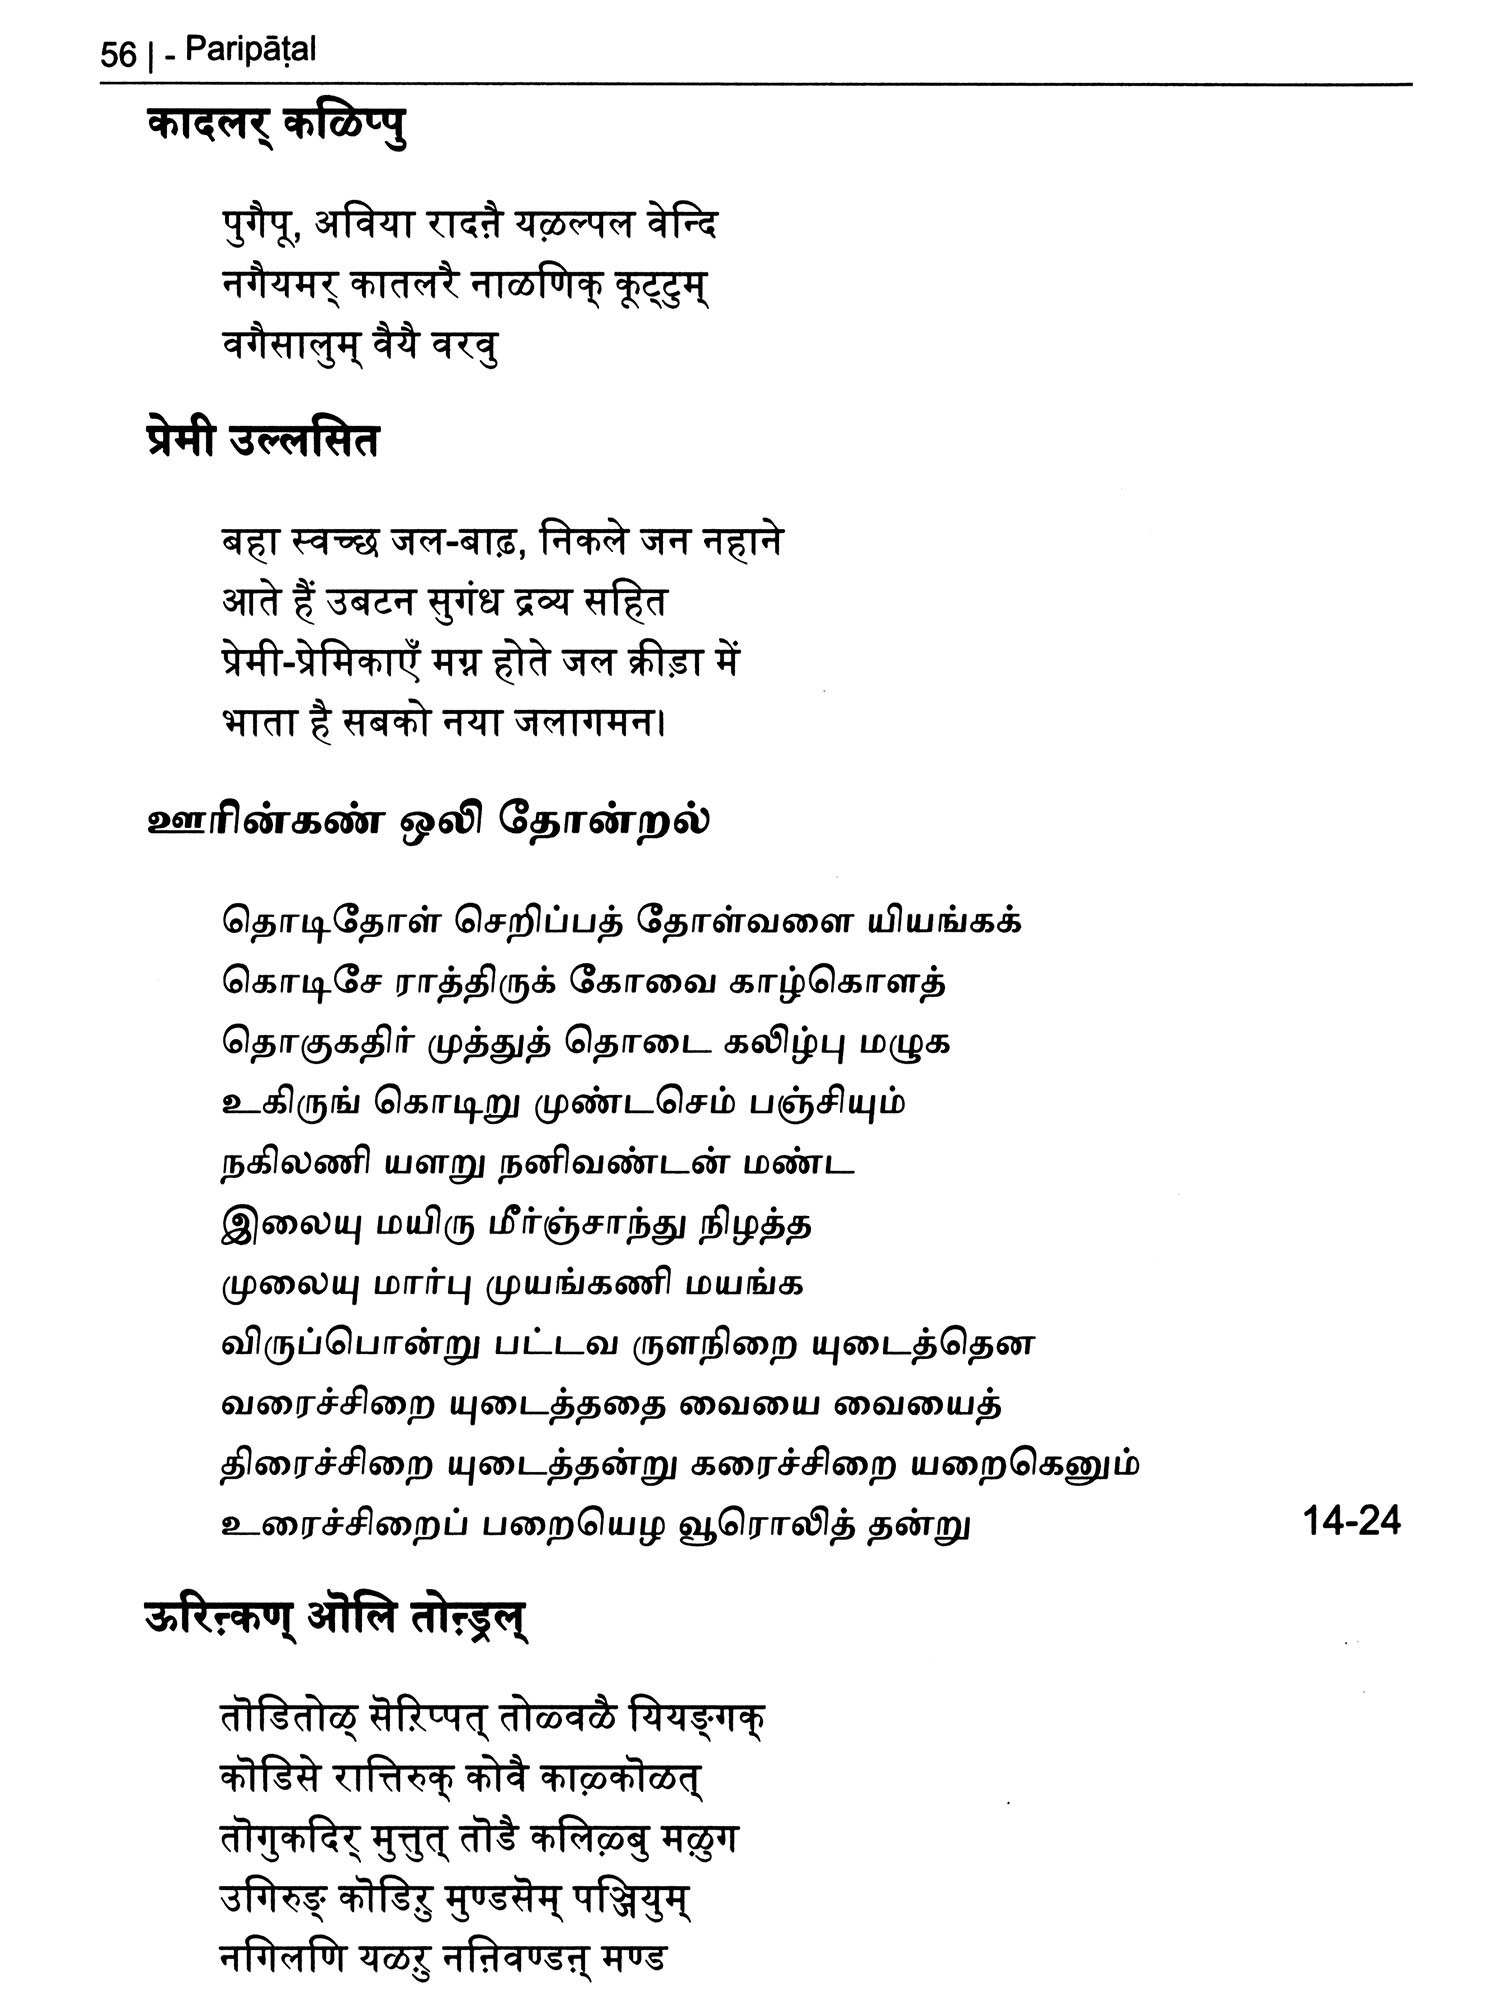 56 | - Paripāṭal
कादलर् कळिप्पु
पुगैपू, अविया रादऩै यऴल्पल वेन्दि
नगैयमर् कातलरै नाळणिक् कूट्टुम्
वगैसालुम् वैयै वरवु
प्रेमी उल्लसित
बहा स्वच्छ जल-बाढ़, निकले जन नहाने
आते हैं उबटन सुगंध द्रव्य सहित
प्रेमी-प्रेमिकाएँ मग्न होते जल क्रीड़ा में
भाता है सबको नया जलागमन।
ஊரின்கண் ஒலி தோன்றல்
தொடிதோள் செறிப்பத் தோள்வளை யியங்கக்
கொடிசே ராத்திருக் கோவை காழ்கொளத்
தொகுகதிர் முத்துத் தொடை கலிழ்பு மழுக
உகிருங் கொடிறு முண்டசெம் பஞ்சியும்
நகிலணி யளறு நனிவண்டன் மண்ட
இலையு மயிரு மீர்ஞ்சாந்து நிழத்த
முலையு மார்பு முயங்கணி மயங்க
விருப்பொன்று பட்டவ ருளநிறை யுடைத்தென
வரைச்சிறை யுடைத்ததை வையை வையைத்
திரைச்சிறை யுடைத்தன்று கரைச்சிறை யறைகெனும்
உரைச்சிறைப் பறையெழ வூரொலித் தன்று 14-24
ऊरिऩ्कण् ऒलि तोऩ्ड्रल्
तॊडितोळ् सॆऱिप्पत् तोळ्वळै यियङ्गक्
कॊडिसे रात्तिरुक् कोवै काऴ्कॊळत्
तॊगुकदिर् मुत्तुत् तॊडै कलिऴ्बु मऴुग
उगिरुङ् कॊडिऱु मुण्डसॆम् पञ्जियुम्
नगिलणि यळऱु नऩिवण्डऩ् मण्ड